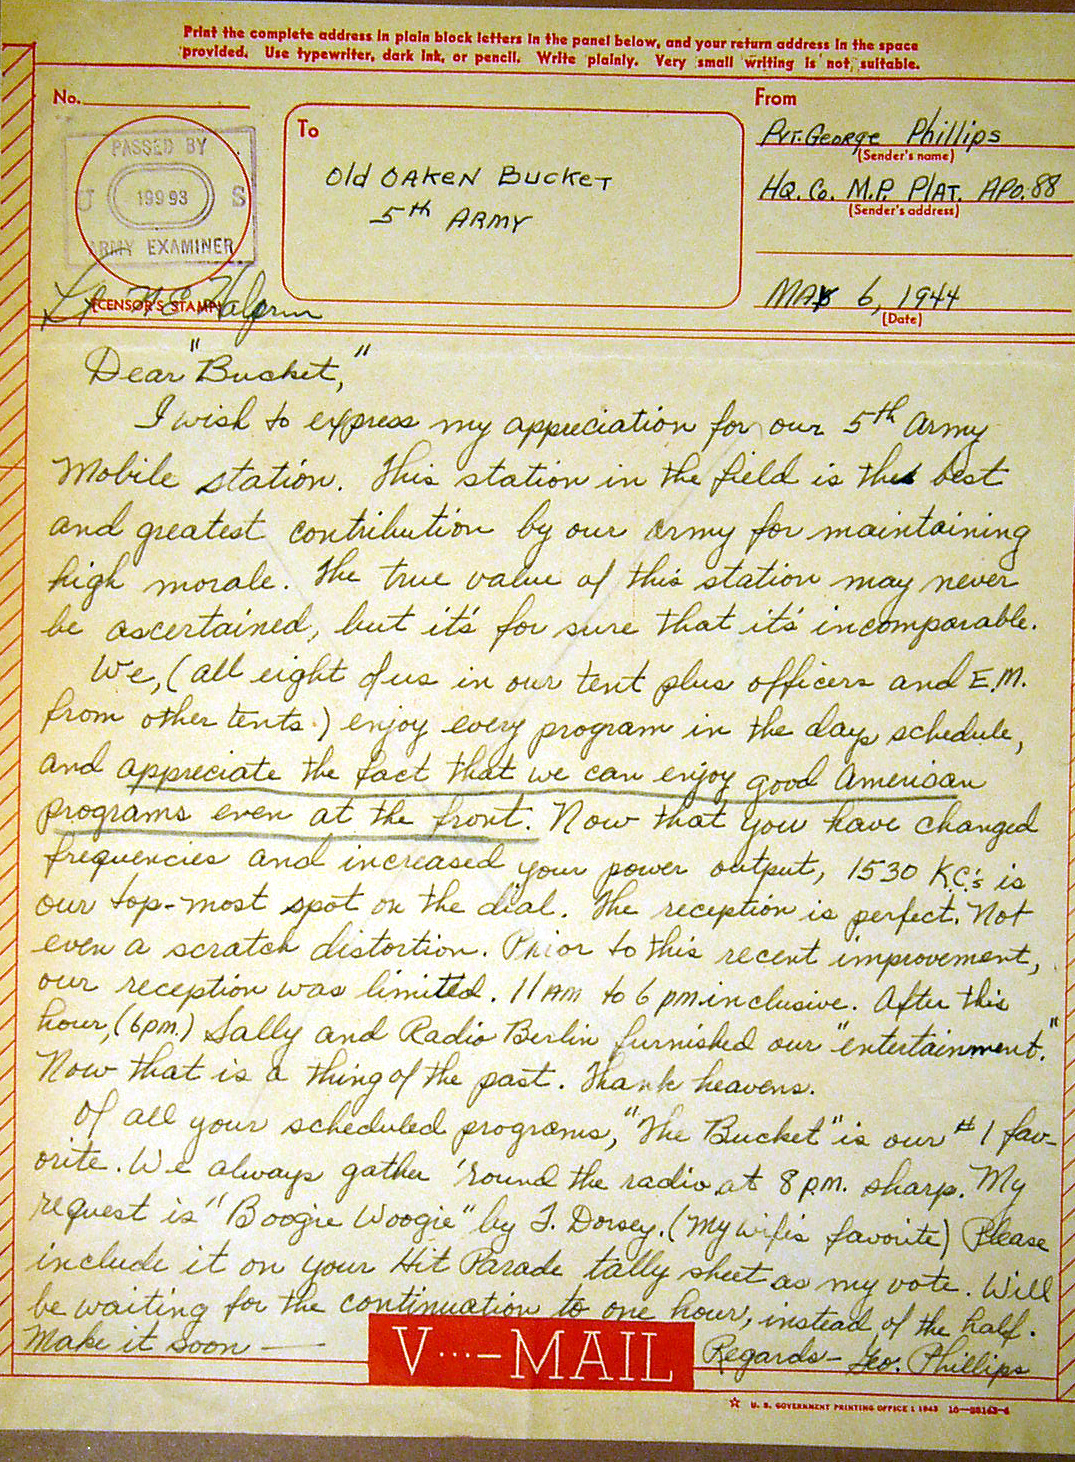 Print the complete address in plain block letters in the panel below, and your return address in the space
provided. Use typewriter, dark ink, or pencil. Write plainly. Very small writing is not suitable.
No.
PASSED BY
U 19993 S
ARMY EXAMINER
(CENSOR'S STAMP)
To
Old OAKEN BUCKET
5th ARMY
From
Pvt. George Phillips
(Sender's name)
HQ. Co. M.P. PlAT. APO. 88
(Sender's address)
MAY 6, 1944
(Date)
Dear "Bucket,"
I wish to express my appreciation for our 5th Army
Mobile station. This station in the field is the best
and greatest contribution by our army for maintaining
high morale. The true value of this station may never
be ascertained, but it's for sure that it's incomparable.
We, (all eight of us in our tent plus officers and E.M.
from other tents.) enjoy every program in the days schedule,
and appreciate the fact that we can enjoy good American
programs even at the front. Now that you have changed
frequencies and increased your power output, 1530 K.C.'s is
our top-most spot on the dial. The reception is perfect. Not
even a scratch distortion. Prior to this recent improvement,
our reception was limited. 11 AM to 6 pm inclusive. After this
hour, (6 pm.) Sally and Radio Berlin furnished our "entertainment."
Now that is a thing of the past. Thank heavens.
Of all your scheduled programs, "The Bucket" is our #1 fav-
orite. We always gather 'round the radio at 8 p.m. sharp. My
request is "Boogie Woogie" by T. Dorsey. (My wife's favorite) Please
include it on your Hit Parade tally sheet as my vote. Will
be waiting for the continuation to one hour, instead of the half.
Make it soon —
V···—MAIL
Regards - Geo. Phillips
☆ U. S. GOVERNMENT PRINTING OFFICE : 1943 16—28143-4